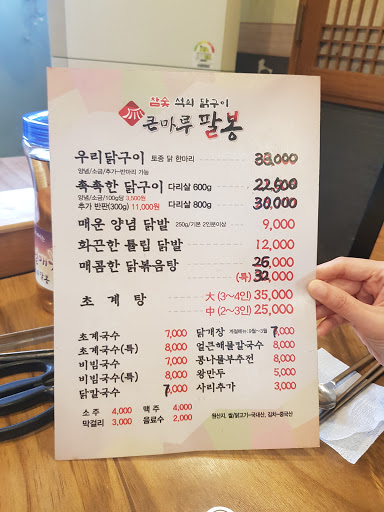 참숯 석쇠 닭구이
큰마루 팔봉
우리닭구이 토종 닭 한마리 38,000
양념/소금/추가-반마리 가능
촉촉한 닭구이 다리살 600g 22,500
양념/소금/100g당 3,500원
추가 반판(300g) 11,000원 다리살 800g 30,000
매운 양념 닭발 250g/기본 2인분이상 9,000
화끈한 튤립 닭발 12,000
매콤한 닭볶음탕 26,000
(특) 32,000
초계탕 大 (3~4인) 35,000
中 (2~3인) 25,000
초계국수 7,000
초계국수(특) 8,000
비빔국수 7,000
비빔국수(특) 8,000
닭칼국수 7,000
닭개장 계절메뉴:9월~3월 7,000
얼큰해물칼국수 8,000
콩나물부추전 8,000
왕만두 5,000
사리추가 3,000
소주 4,000 맥주 4,000
막걸리 3,000 음료수 2,000
원산지, 쌀/닭고기-국내산, 김치-중국산